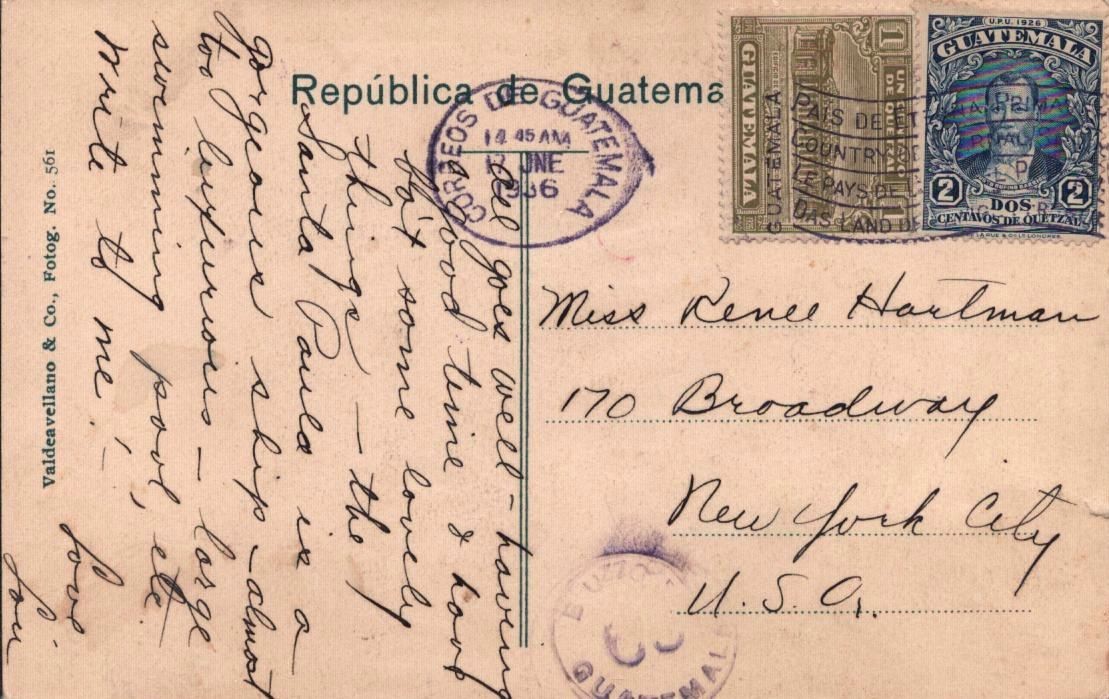 República de Guatema
CORREOS DE GUATEMALA
45 AM
UNE
1936
1
UN
1
GUATEMALA
GUATEMALA
PAIS DE ET
COUNTRY
LE PAYS DE
DAS LAND DE
U.P.U. 1926
GUATEMALA
2
DOS
2
CENTAVOS DE QUETZAL
Miss Renee Hartman
170 Broadway
New York City
U. S. A.
BUZON
GUATEMALA
All goes well – having
a good time & have
bo't some lovely
things – the
Santa Paula is a
gorgeous ship – almost
too luxurious – large
swimming pool, etc
Write to me! –
Love
Lou
Valdeavellano & Co., Fotog. No. 561